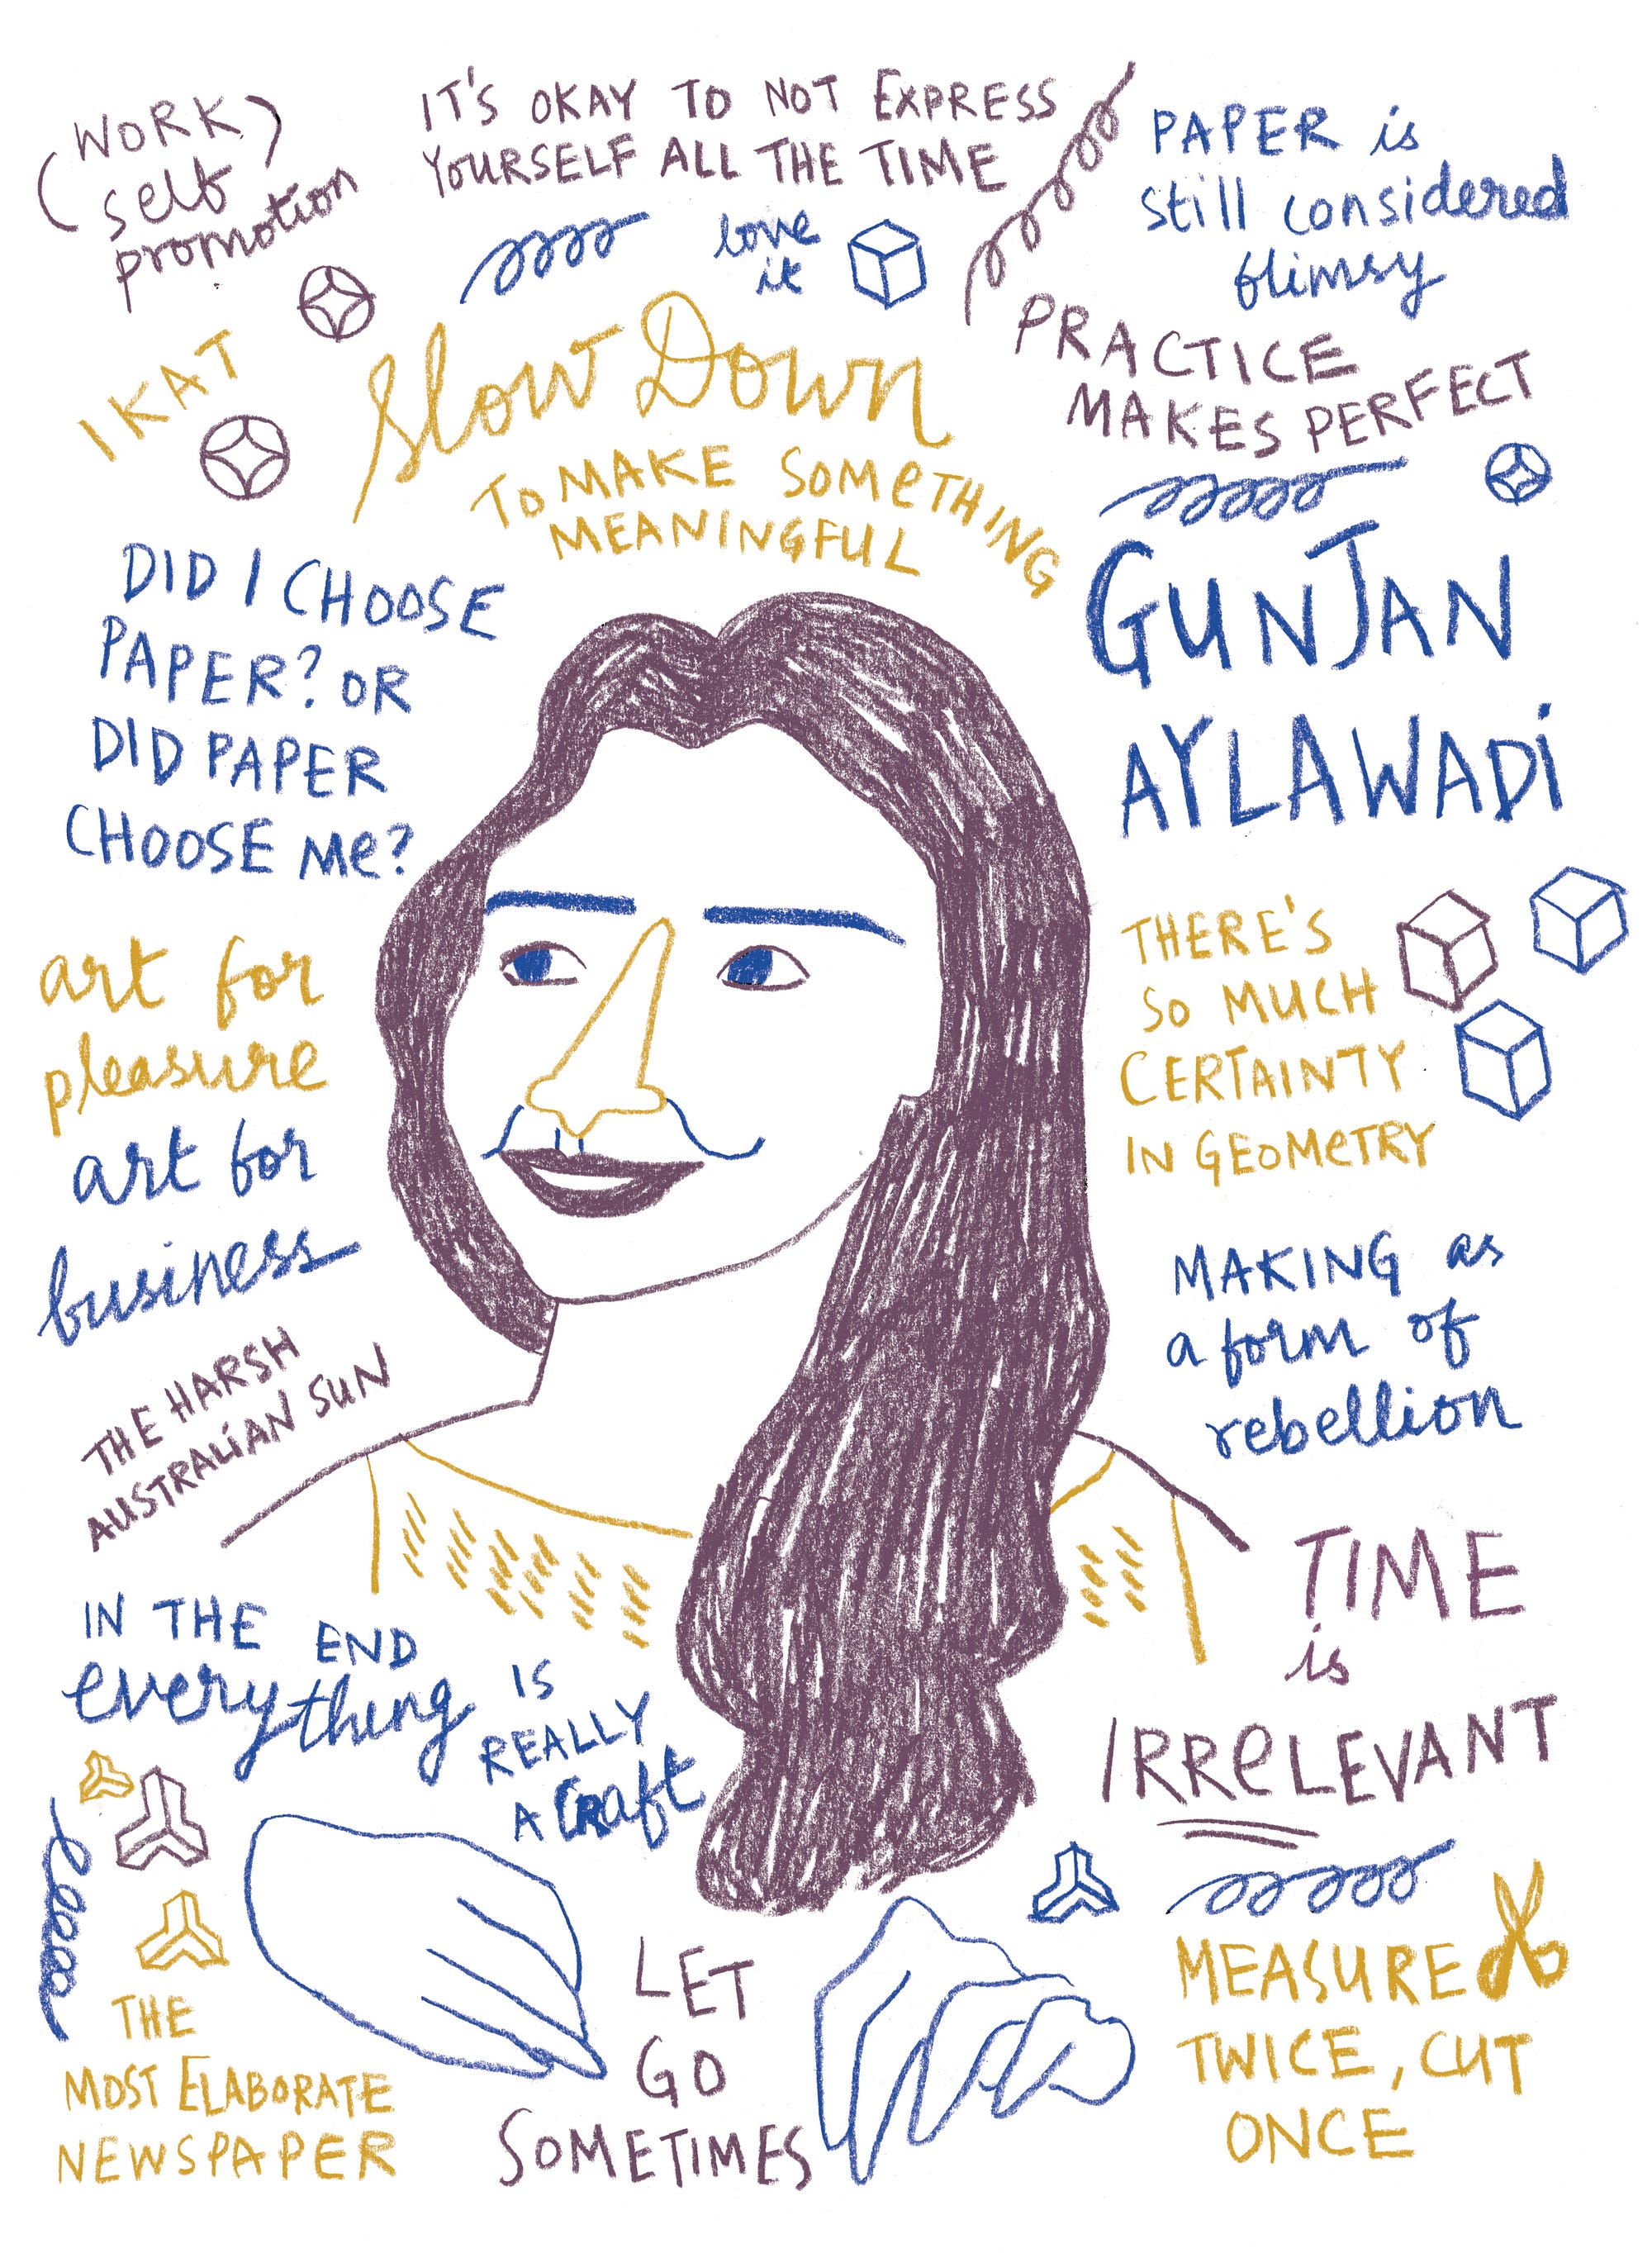 (WORK)
self
promotion
IT'S OKAY TO NOT EXPRESS
YOURSELF ALL THE TIME
love
it
PAPER is
still considered
flimsy
IKAT
Slow Down
TO MAKE SOMeTHING
MEANINGFUL
PRACTICE
MAKES PERFECT
GUNJAN
AYLAWADi
DID I CHOOSE
PAPER? OR
DID PAPER
CHOOSE Me?
art for
pleasure
art for
business
THERE'S
SO MUCH
CERTAINTY
IN GEOMeTRY
MAKING as
a form of
rebellion
THE HARSH
AUSTRALiAN SUN
IN THE END
everything IS
REALLY
A CRaft
TIME
is
IRReLEVANT
THE
MOST ELABORATE
NEWSPAPER
LET
GO
SOMETIMES
MEASURE
TWICE, CUT
ONCE